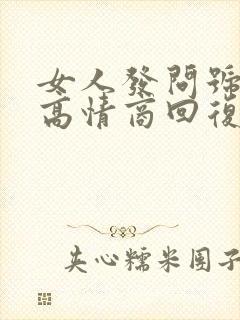 女人發問號
高情商回復
夹心糯米圆子